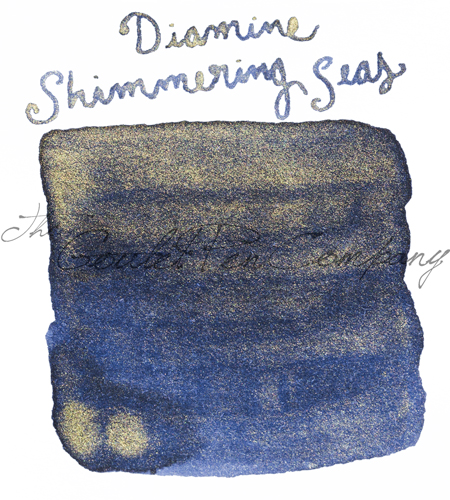 Diamine
Shimmering Seas
The Goulet Pen Company